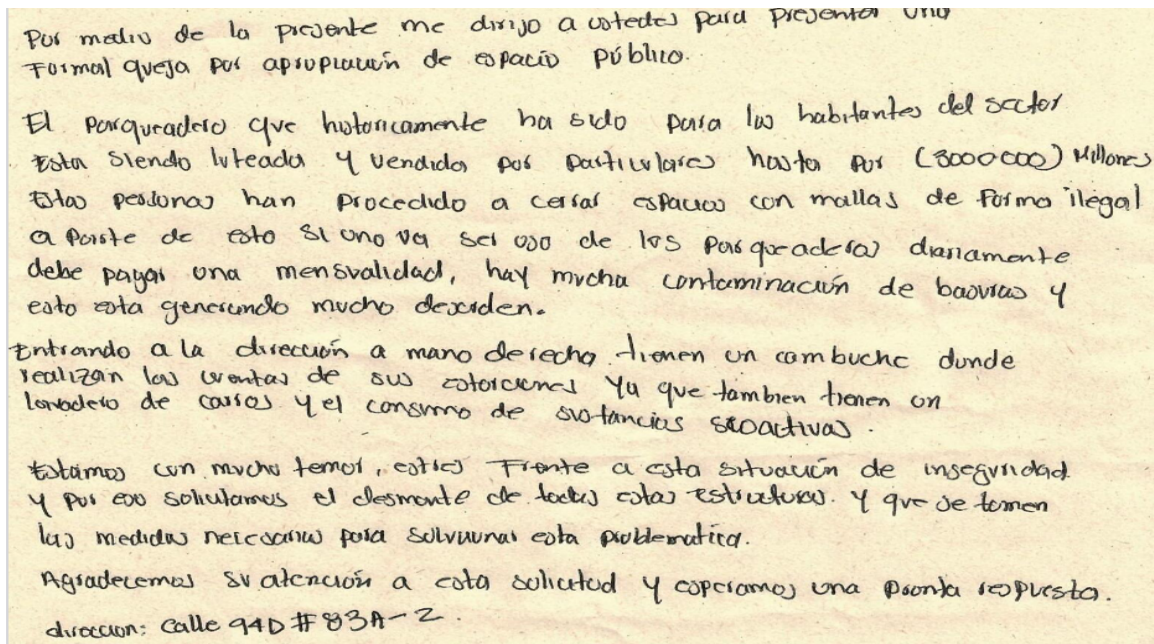 Por medio de la presente me dirijo a ustedes para presentar una
Formal queja por apropiación de espacio público.
El parqueadero que historicamente ha sido para los habitantes del sector
Esta siendo loteada y vendida por particulares hasta por (3000000) Millones
Estas personas han procedido a cerrar espacios con mallas de forma ilegal
a parte de esto si uno va ser uso de los parqueaderos diariamente
debe pagar una mensualidad, hay mucha contaminación de basuras y
esto esta generando mucho desorden.
Entrando a la dirección a mano derecha tienen un cambuche donde
realizan las cuentas de sus extorciones ya que tambien tienen un
lavadero de carros y el consumo de sustancias sicoactivas.
Estamos con mucho temor, estres Frente a esta situación de inseguridad
y por eso solicitamos el desmonte de todas estas estructuras. y que se tomen
las medidas necesarias para solucionar esta problematica.
Agradecemos su atención a esta solicitud y esperamos una pronta respuesta.
direccion: Calle 94D # 83A-2.